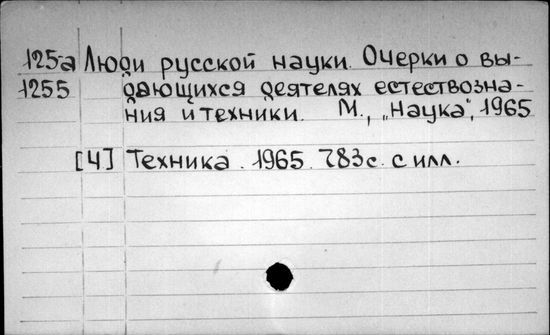 125-а Люди русской науки. Очерки о вы-
1255 дающихся деятелях естествозна-
ния и техники. М., „Наука", 1965
[4] Техника. 1965. 783с. с илл.